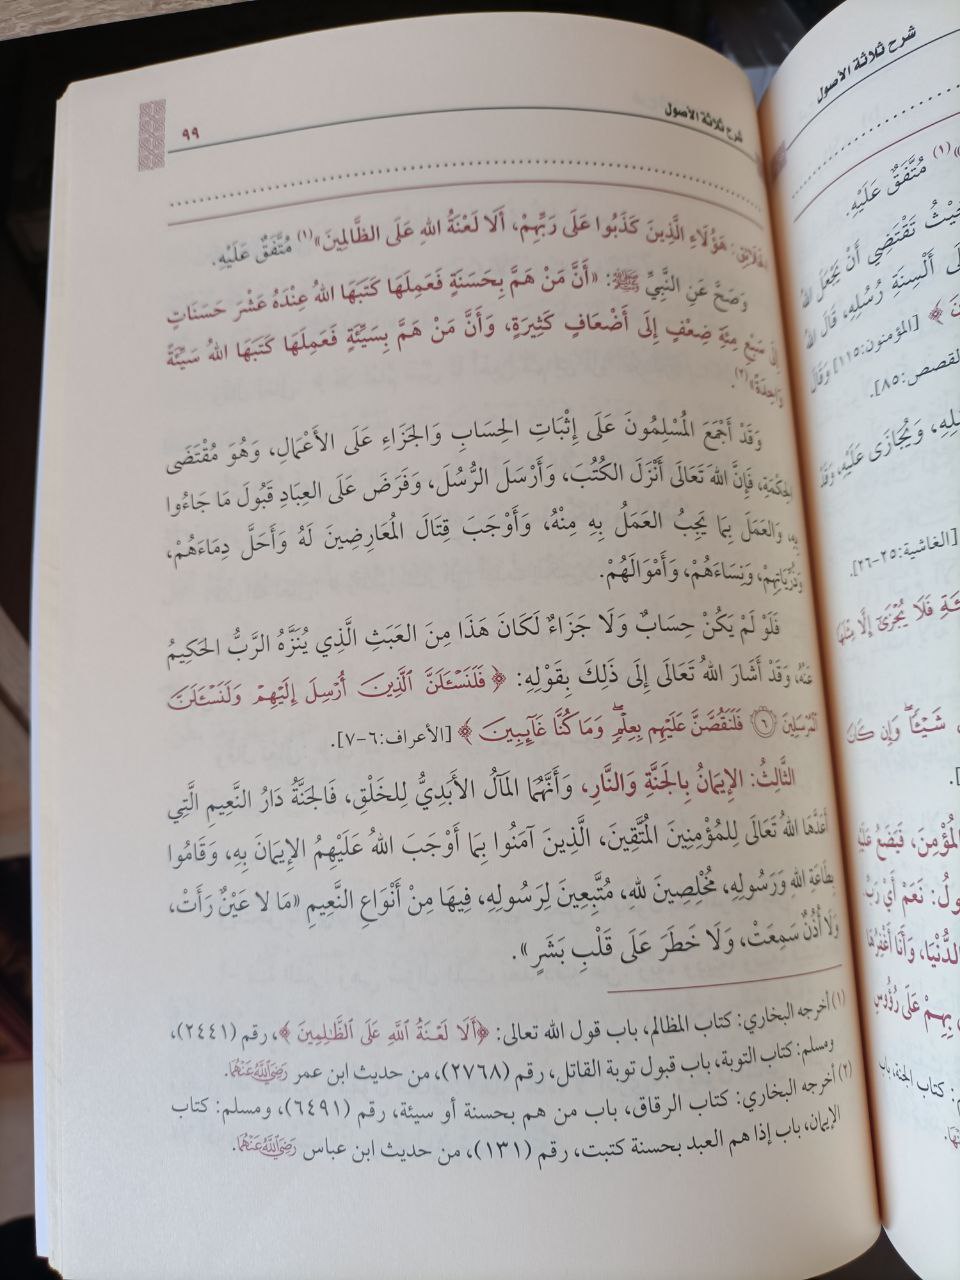 شرح ثلاثة الأصول
٩٩
الخَلَائِقِ: هَؤُلَاءِ الَّذِينَ كَذَبُوا عَلَى رَبِّهِمْ، أَلَا لَعْنَةُ اللهِ عَلَى الظَّالِمِينَ»(١) مُتَّفَقٌ عَلَيْهِ.
وَصَحَّ عَنِ النَّبِيِّ ﷺ: «أَنَّ مَنْ هَمَّ بِحَسَنَةٍ فَعَمِلَهَا كَتَبَهَا اللهُ عِنْدَهُ عَشْرَ حَسَنَاتٍ
إِلَى سَبْعِ مِئَةِ ضِعْفٍ إِلَى أَضْعَافٍ كَثِيرَةٍ، وَأَنَّ مَنْ هَمَّ بِسَيِّئَةٍ فَعَمِلَهَا كَتَبَهَا اللهُ سَيِّئَةً
وَاحِدَةً»(٢).
وَقَدْ أَجْمَعَ المُسْلِمُونَ عَلَى إِثْبَاتِ الحِسَابِ وَالجَزَاءِ عَلَى الأَعْمَالِ، وَهُوَ مُقْتَضَى
الحِكْمَةِ، فَإِنَّ اللهَ تَعَالَى أَنْزَلَ الكُتُبَ، وَأَرْسَلَ الرُّسُلَ، وَفَرَضَ عَلَى العِبَادِ قَبُولَ مَا جَاءُوا
بِهِ، وَالعَمَلَ بِمَا يَجِبُ العَمَلُ بِهِ مِنْهُ، وَأَوْجَبَ قِتَالَ المُعَارِضِينَ لَهُ وَأَحَلَّ دِمَاءَهُمْ،
وَذُرِّيَّاتِهِمْ، وَنِسَاءَهُمْ، وَأَمْوَالَهُمْ.
فَلَوْ لَمْ يَكُنْ حِسَابٌ وَلَا جَزَاءٌ لَكَانَ هَذَا مِنَ العَبَثِ الَّذِي يُنَزَّهُ الرَّبُّ الحَكِيمُ
عَنْهُ، وَقَدْ أَشَارَ اللهُ تَعَالَى إِلَى ذَلِكَ بِقَوْلِهِ: ﴿فَلَنَسْـَٔلَنَّ ٱلَّذِينَ أُرْسِلَ إِلَيْهِمْ وَلَنَسْـَٔلَنَّ
ٱلْمُرْسَلِينَ ٦ فَلَنَقُصَّنَّ عَلَيْهِم بِعِلْمٍ وَمَا كُنَّا غَآئِبِينَ﴾ [الأعراف:٦-٧].
الثَّالِثُ: الإِيمَانُ بِالجَنَّةِ وَالنَّارِ، وَأَنَّهُمَا المَآلُ الأَبَدِيُّ لِلخَلْقِ، فَالجَنَّةُ دَارُ النَّعِيمِ الَّتِي
أَعَدَّهَا اللهُ تَعَالَى لِلمُؤْمِنِينَ المُتَّقِينَ، الَّذِينَ آمَنُوا بِمَا أَوْجَبَ اللهُ عَلَيْهِمُ الإِيمَانَ بِهِ، وَقَامُوا
بِطَاعَةِ اللهِ وَرَسُولِهِ، مُخْلِصِينَ لِلهِ، مُتَّبِعِينَ لِرَسُولِهِ، فِيهَا مِنْ أَنْوَاعِ النَّعِيمِ «مَا لَا عَيْنٌ رَأَتْ،
وَلَا أُذُنٌ سَمِعَتْ، وَلَا خَطَرَ عَلَى قَلْبِ بَشَرٍ».
(١) أخرجه البخاري: كتاب المظالم، باب قول الله تعالى: ﴿أَلَا لَعْنَةُ ٱللَّهِ عَلَى ٱلظَّٰلِمِينَ﴾، رقم (٢٤٤١)،
ومسلم: كتاب التوبة، باب قبول توبة القاتل، رقم (٢٧٦٨)، من حديث ابن عمر رَضِيَ اللَّهُ عَنْهُمَا.
(٢) أخرجه البخاري: كتاب الرقاق، باب من هم بحسنة أو سيئة، رقم (٦٤٩١)، ومسلم: كتاب
الإيمان، باب إذا هم العبد بحسنة كتبت، رقم (١٣١)، من حديث ابن عباس رَضِيَ اللَّهُ عَنْهُمَا.
شرح ثلاثة الأصول
(١) مُتَّفَقٌ عَلَيْهِ.
تَقْتَضِي أَنْ يَجْعَلَ اللهُ
أَلْسِنَةِ رُسُلِهِ، قَالَ اللهُ
﴾ [المؤمنون:١١٥] وَقَالَ
القصص:٨٥].
وَيُجَازَى عَلَيْهِ، وَقَدْ
[الغاشية:٢٥-٢٦].
فَلَا يُجْزَىٰٓ إِلَّا مِثْلَهَا
شَيْـًٔا وَإِن كَانَ
المُؤْمِنَ، فَيَضَعُ عَلَيْهِ
نَعَمْ أَيْ رَبِّ
الدُّنْيَا، وَأَنَا أَغْفِرُهَا
بِهِمْ عَلَى رُؤُوسِ
كتاب الجنة، باب